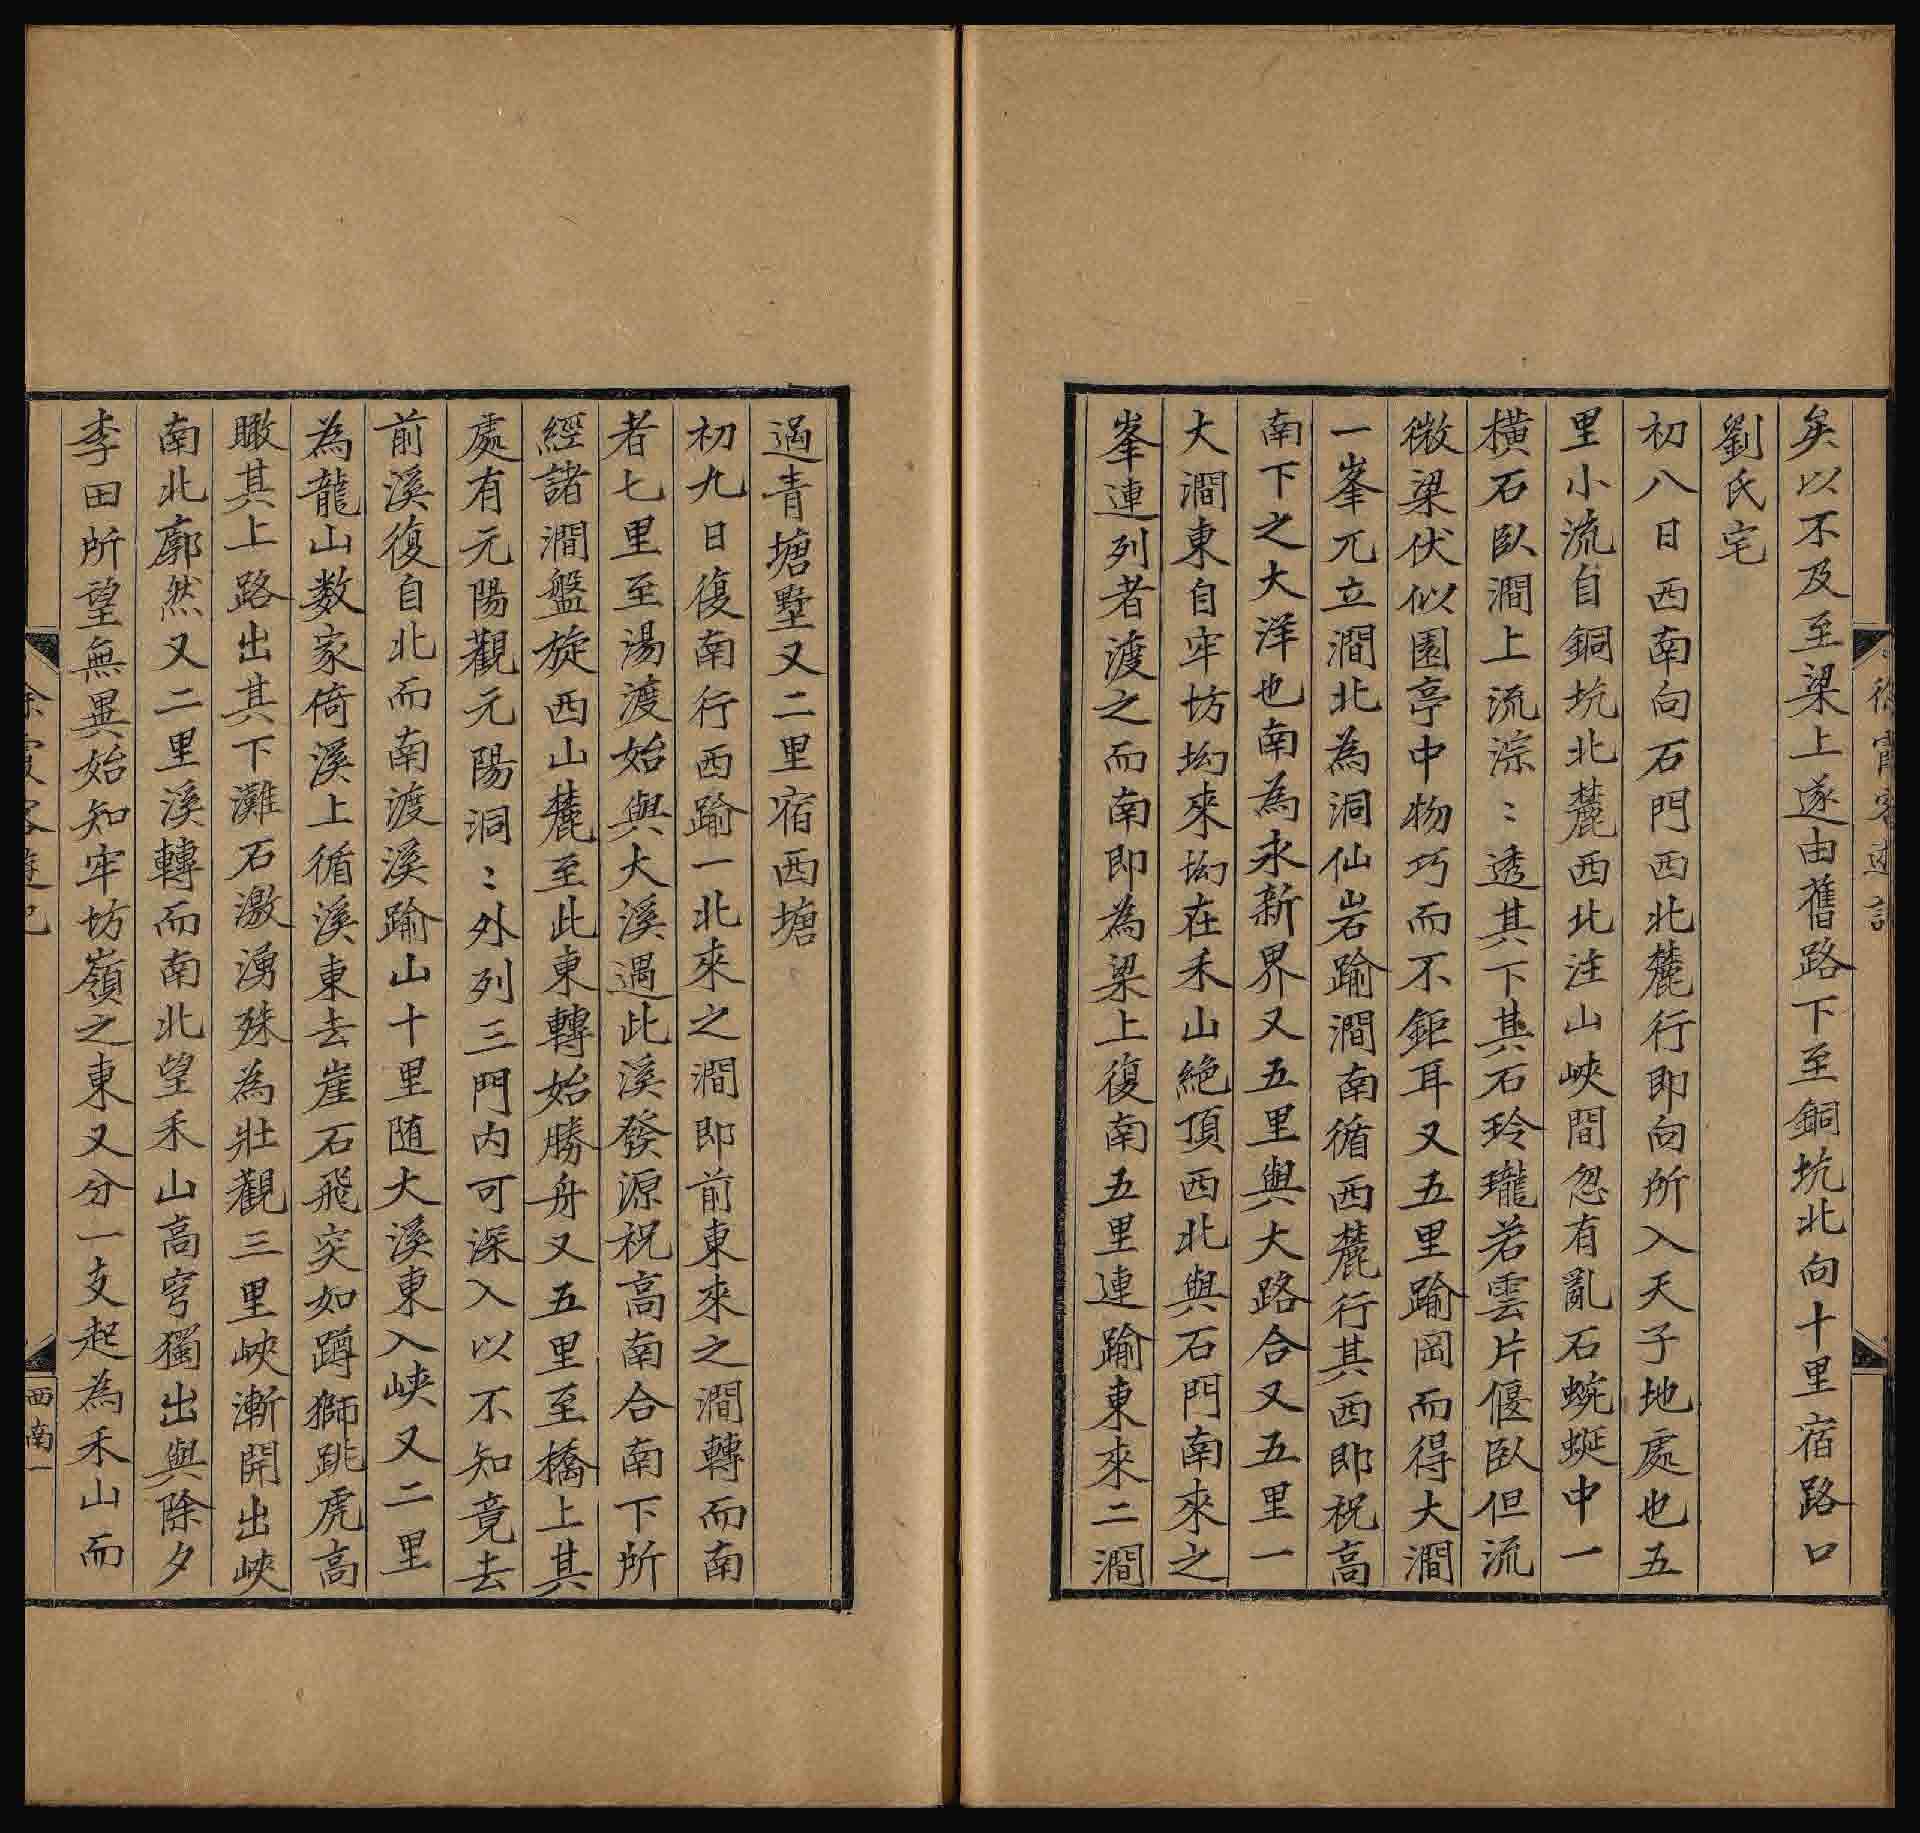 徐霞客遊記
矣以不及至梁上遂由舊路下至銅坑北向十里宿路口
劉氏宅
初八日西南向石門西北麓行即向所入天子地處也五
里小流自銅坑北麓西北注山峽間忽有亂石蜿蜒中一
橫石臥澗上流淙〻透其下其石玲瓏若雲片偃臥但流
微梁伏似園亭中物巧而不鉅耳又五里踰岡而得大澗
一峯兀立澗北為洞仙岩踰澗南循西麓行其西即祝高
南下之大洋也南為永新界又五里與大路合又五里一
大澗東自牢坊坳來坳在禾山絶頂西北與石門南來之
峯連列者渡之而南即為梁上復南五里連踰東來二澗
過青塘墅又二里宿西塘
初九日復南行西踰一北來之澗即前東來之澗轉而南
者七里至湯渡始與大溪遇此溪發源祝高南合南下所
經諸澗盤旋西山麓至此東轉始勝舟又五里至橋上其
處有元陽觀元陽洞〻外列三門内可深入以不知竟去
前溪復自北而南渡溪踰山十里随大溪東入峽又二里
為龍山数家倚溪上循溪東去崖石飛突如蹲獅跳虎高
瞰其上路出其下灘石激湧殊為壯觀三里峽漸開出峽
南北廓然又二里溪轉而南北望禾山高穹獨出與除夕
李田所望無異始知牢坊嶺之東又分一支起為禾山而
徐霞客遊記
西南一